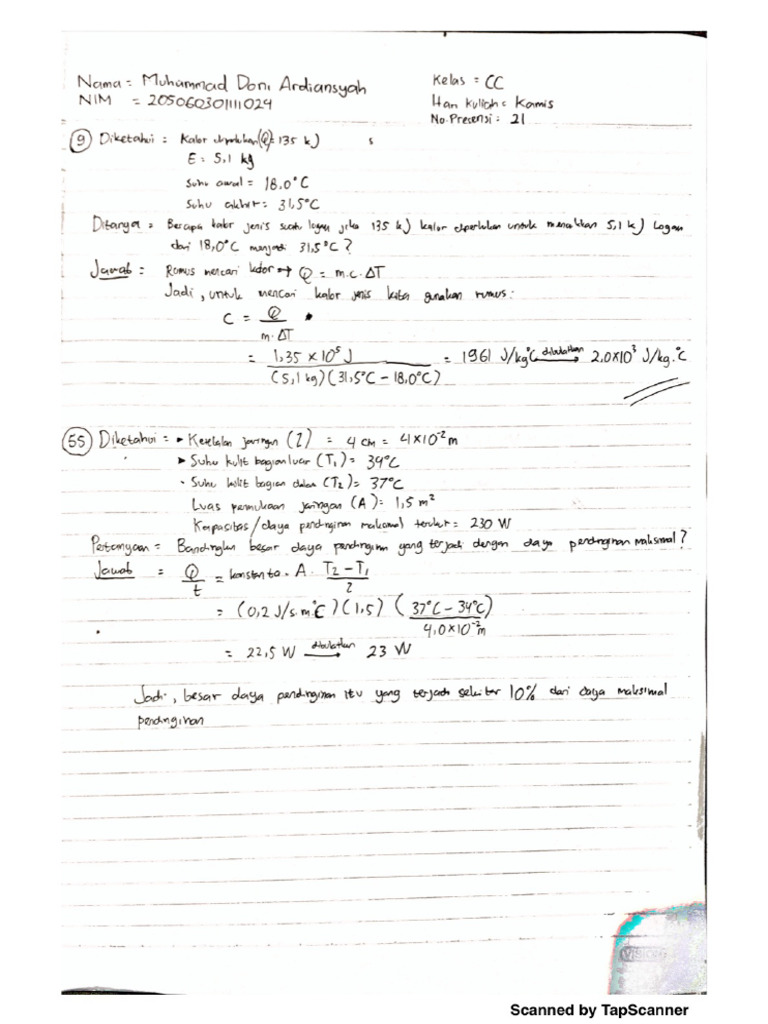 Nama = Muhammad Doni Ardiansyah
Kelas = CC
NIM = 205060301111024
Hari Kuliah = Kamis
No. Presensi = 21
9 Diketahui = Kalor diperlukan (Q) = 135 kJ
E = 5,1 kg
Suhu awal = 18.0°C
Suhu akhir = 31,5°C
Ditanya = Berapa kalor jenis suatu logam jika 135 kJ kalor diperlukan untuk menaikkan 5,1 kJ Logam
dari 18,0°C menjadi 31,5°C ?
Jawab = Rumus mencari kalor → Q = m.c.ΔT
Jadi, untuk mencari kalor jenis kita gunakan rumus :
C = Q / m.ΔT
= 1,35 × 10⁵ J / (5,1 kg)(31,5°C – 18,0°C) = 1961 J/kg°C dibulatkan → 2.0×10³ J/kg.°C
55 Diketahui = ▸ Ketebalan jaringan (l) = 4 cm = 4×10⁻² m
▸ Suhu kulit bagian luar (T₁) = 34°C
• Suhu kulit bagian dalam (T₂) = 37°C
Luas permukaan jaringan (A) = 1,5 m²
Kapasitas / daya pendinginan maksimal = 230 W
Pertanyaan = Bandingkan besar daya pendinginan yang terjadi dengan daya pendinginan maksimal ?
Jawab = Q/t = konstanta . A . T₂ – T₁ / l
= (0,2 J/s.m.°C)(1,5) (37°C – 34°C / 4,0×10⁻² m)
= 22,5 W dibulatkan → 23 W
Jadi, besar daya pendinginan itu yang terjadi sekitar 10% dari daya maksimal
pendinginan
VISION
Scanned by TapScanner